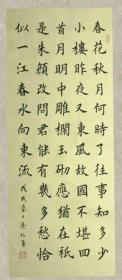 春花秋月何時了往事知多少
小樓昨夜又東風故國不堪回
首月明中雕欄玉砌應猶在祇
是朱顏改問君能有幾多愁恰
似一江春水向東流 戊戌